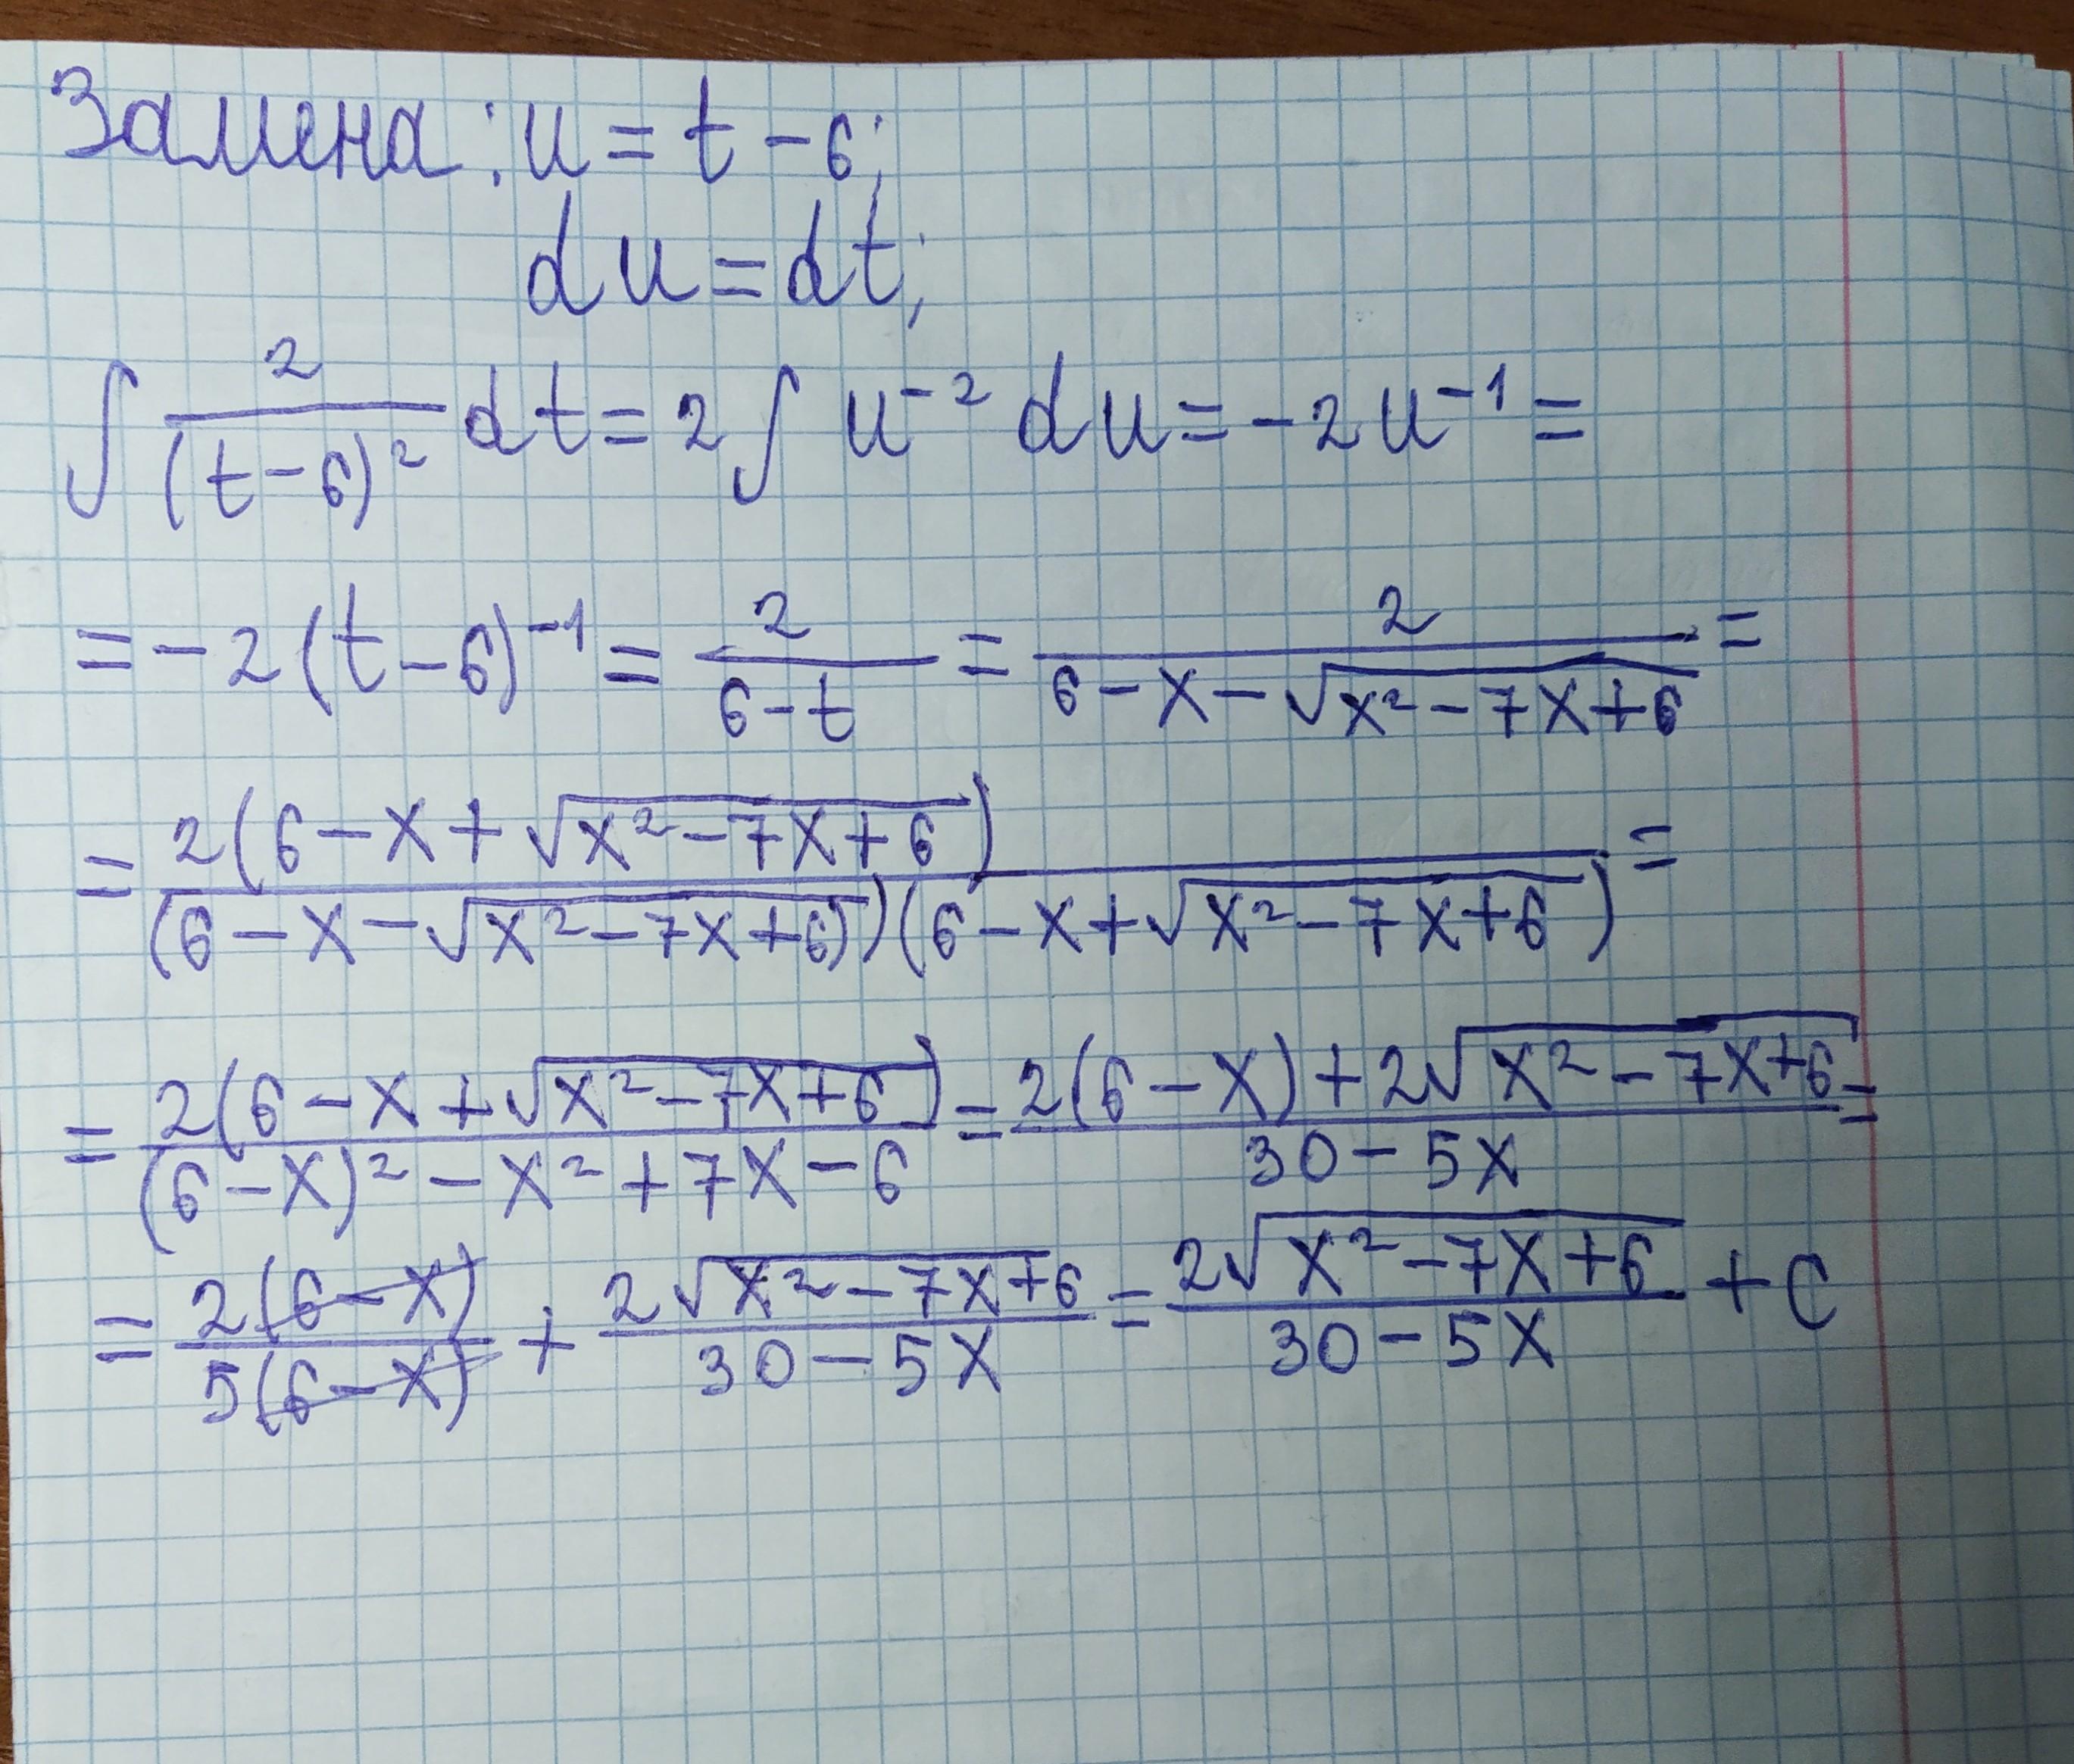 Замена: u = t - 6;
du = dt;
∫ 2/(t-6)² dt = 2∫ u⁻² du = -2u⁻¹ =
= -2(t-6)⁻¹ = 2/(6-t) = 2/(6-x-√(x²-7x+6)) =
= 2(6-x+√(x²-7x+6))/((6-x-√(x²-7x+6))(6-x+√(x²-7x+6))) =
= 2(6-x+√(x²-7x+6))/((6-x)²-x²+7x-6) = (2(6-x)+2√(x²-7x+6))/(30-5x) =
= 2(6-x)/(5(6-x)) + 2√(x²-7x+6)/(30-5x) = 2√(x²-7x+6)/(30-5x) + C